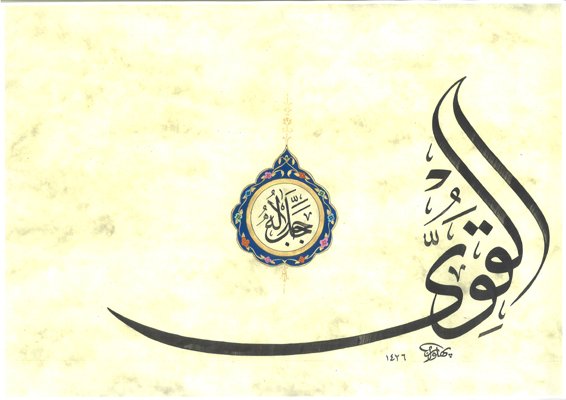 القوي
جل جلاله
١٤٢٦